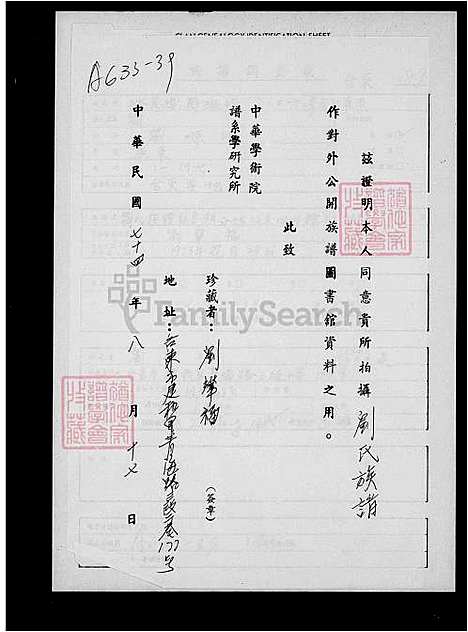 CLAN GENEALOGY IDENTIFICATION SHEET
A633-39
茲證明本人同意貴所拍攝劉氏族譜
作對外公開族譜圖書館資料之用。
此致
中華學術院
譜系學研究所
珍藏者：劉
(簽章)
地址：台東市建和里青海路段巷177号
中華民國七十四年八月十七日
FamilySearch